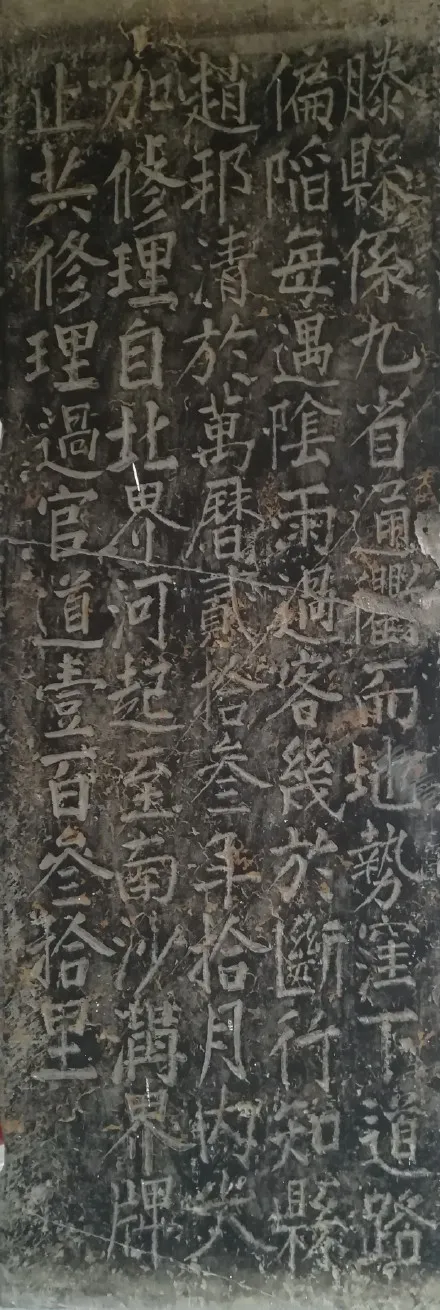 滕縣係九省通衢而地勢窪下道路
偏陷每遇陰雨過客幾於斷行知縣
趙邦清於萬曆貳拾叁年拾月內大
加修理自北界河起至南沙溝界牌
止共修理過官道壹百叁拾里